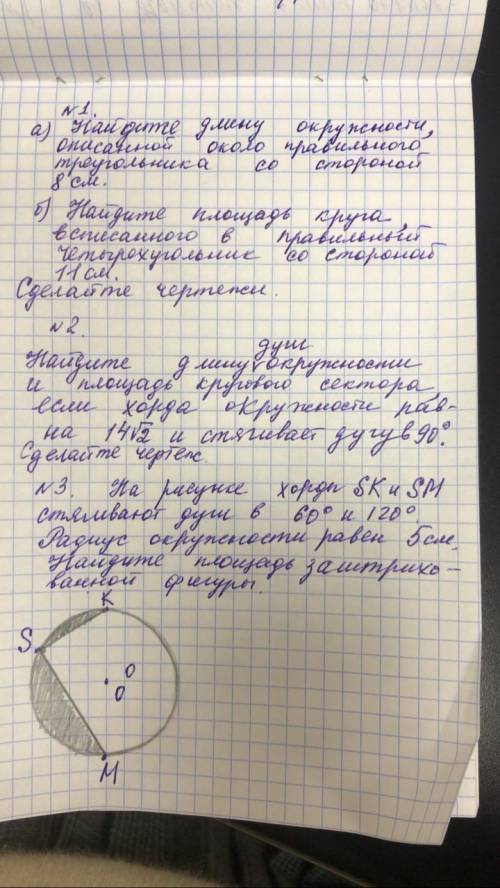 №1.
а) Найдите длину окружности,
описанной около правильного
треугольника со стороной
8 см.
б) Найдите площадь круга,
вписанного в правильный
четырехугольник со стороной
11 см.
Сделайте чертежи.
№2.
дуги
Найдите длину окружности
и площадь кругового сектора,
если хорда окружности рав-
на 14√2 и стягивает дугу в 90°.
Сделайте чертеж.
№3. На рисунке хорды SK и SM
стягивают дуги в 60° и 120°.
Радиус окружности равен 5 см.
Найдите площадь заштрихо-
ванной фигуры.
K
S
O
O
M